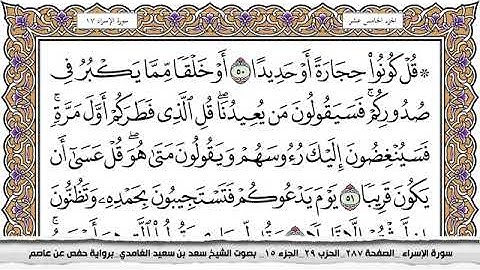 الجزء الخامس عشر
سورة الإسراء ١٧
۞ قُلْ كُونُوا۟ حِجَارَةً أَوْ حَدِيدًا ٥٠ أَوْ خَلْقًا مِّمَّا يَكْبُرُ فِى
صُدُورِكُمْ ۚ فَسَيَقُولُونَ مَن يُعِيدُنَا ۖ قُلِ ٱلَّذِى فَطَرَكُمْ أَوَّلَ مَرَّةٍ ۚ
فَسَيُنْغِضُونَ إِلَيْكَ رُءُوسَهُمْ وَيَقُولُونَ مَتَىٰ هُوَ ۖ قُلْ عَسَىٰٓ أَن
يَكُونَ قَرِيبًا ٥١ يَوْمَ يَدْعُوكُمْ فَتَسْتَجِيبُونَ بِحَمْدِهِۦ وَتَظُنُّونَ
سورة الإسراء _الصفحة ٢٨٧_ الحزب ٢٩_ الجزء ١٥_ بصوت الشيخ سعد بن سعيد الغامدي_ برواية حفص عن عاصم